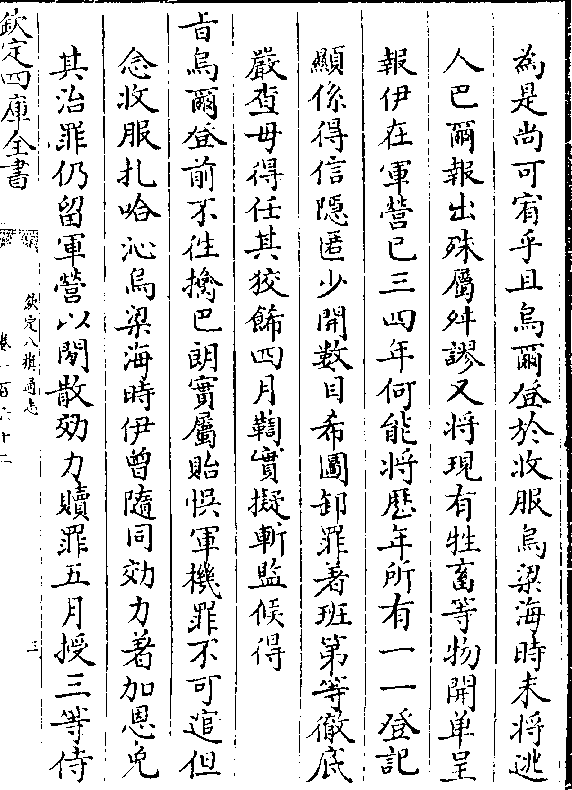 為是尚可宥乎且烏爾登於收服烏梁海時未將逃
人巴爾報出殊屬舛謬又將現有牲畜等物開单呈
報伊在軍營已三四年何能将歴年所有一一登記
顯係得信隠匿少開數目希圖卸罪著班第等徹底
嚴查毋得任其狡餙四月鞫實擬斬監候得
㫖烏爾登前不徃擒巴朗實屬貽悞軍機罪不可逭但
念收服扎哈沁烏梁海時伊曾隨同効力著加恩免
其治罪仍留軍營以閒散効力贖罪五月授三等侍
欽定四庫全書
欽定八旗通志
三